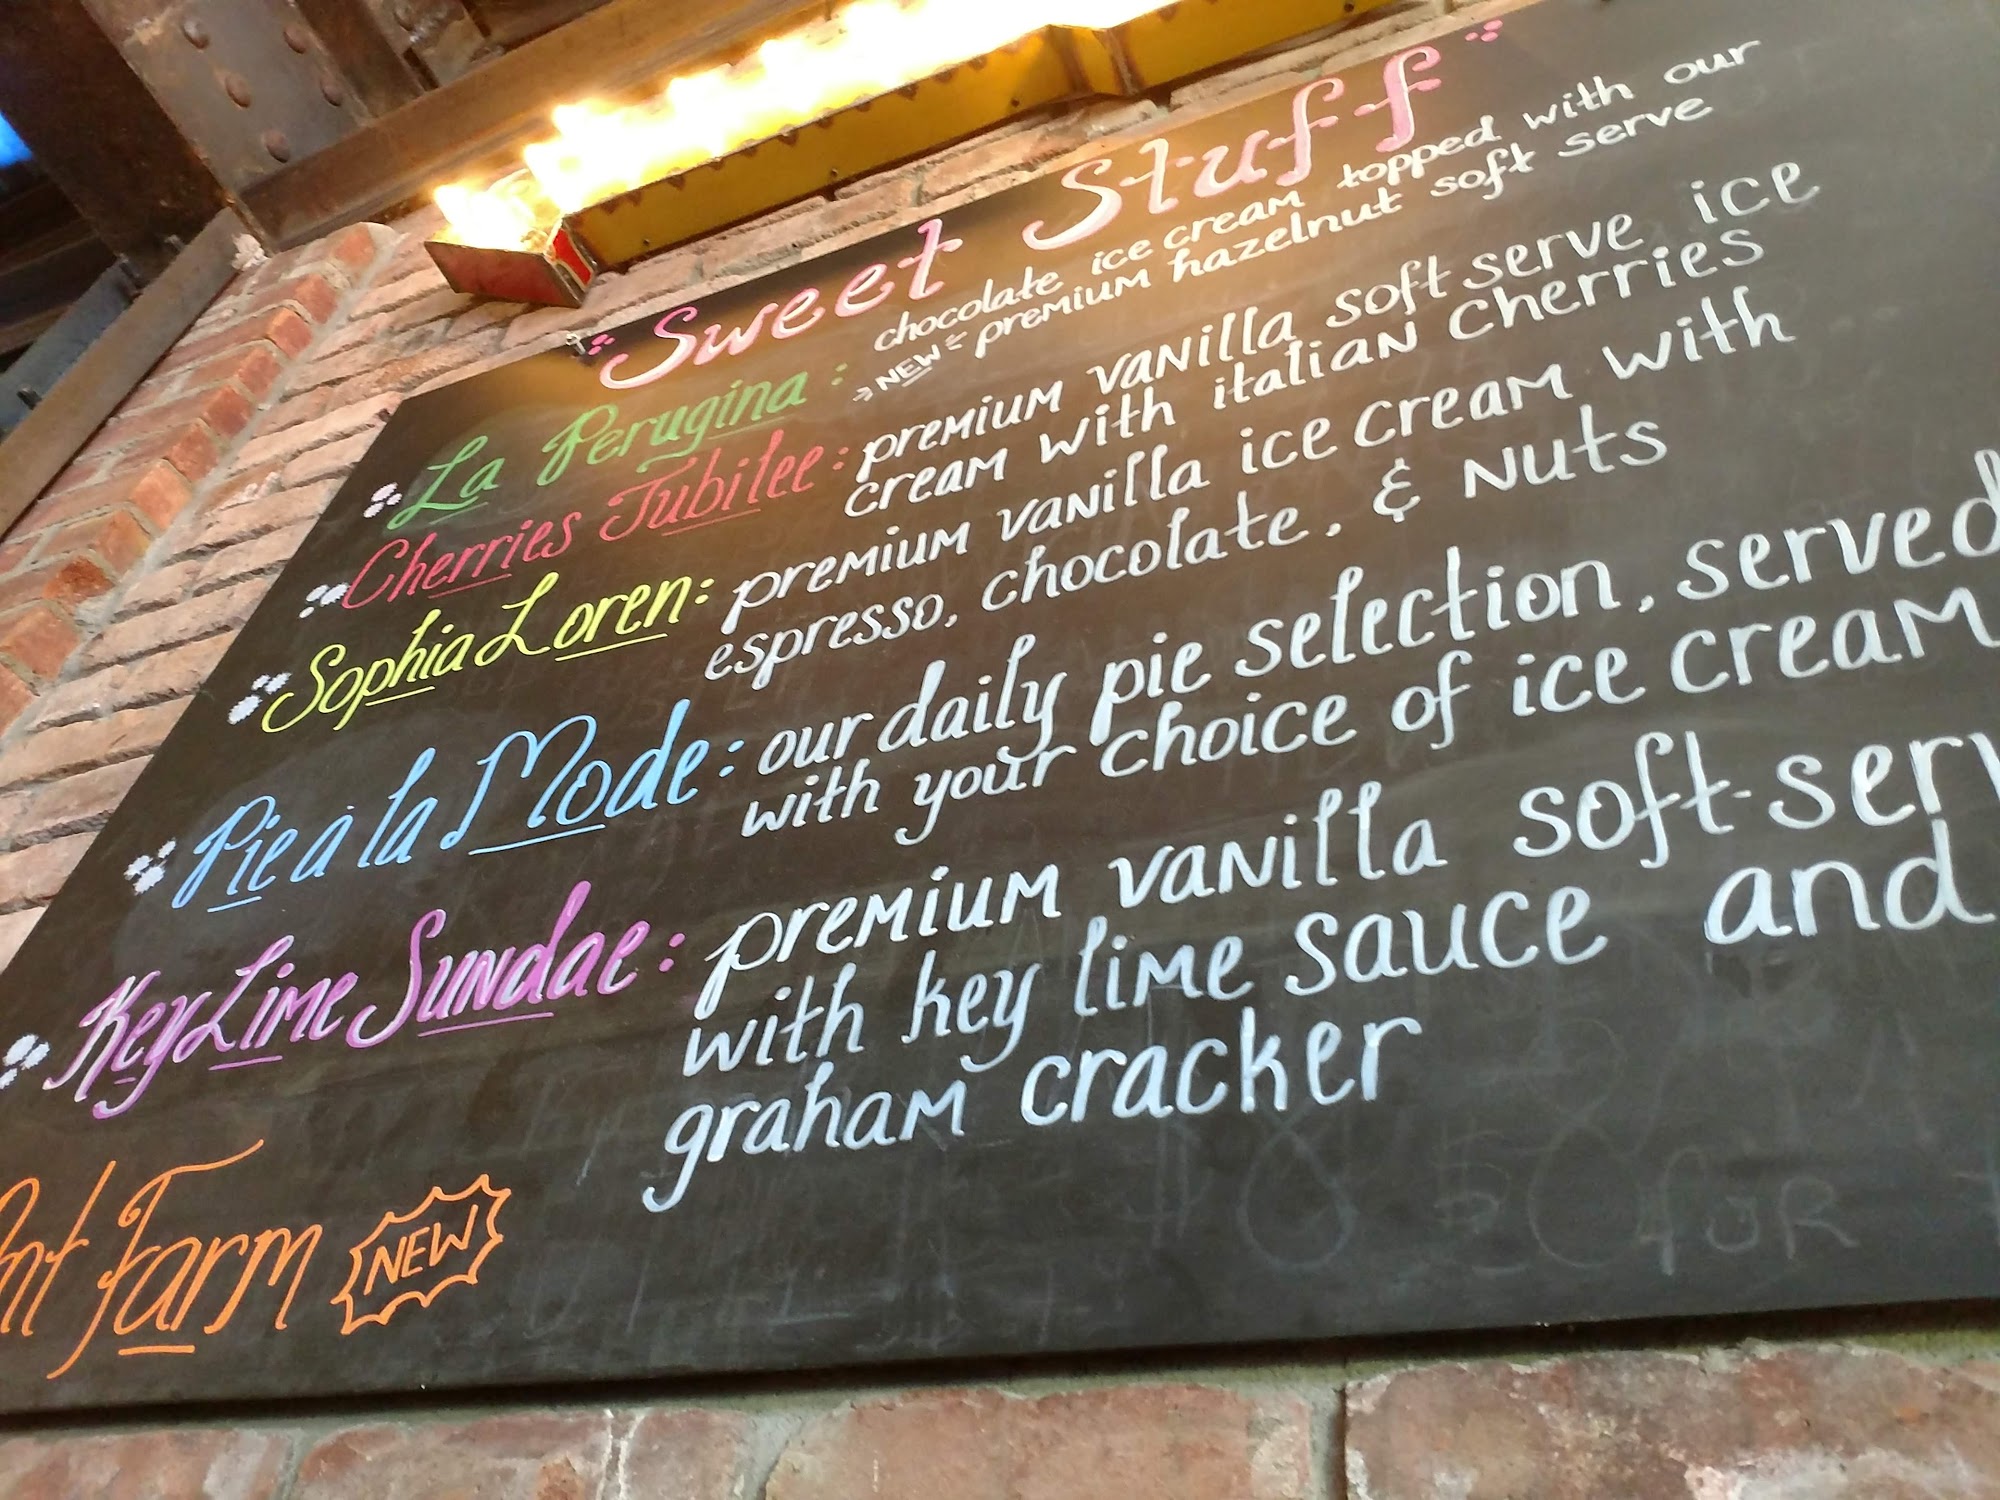 Sweet Stuff
La Perugina: chocolate ice cream topped with our
NEW premium hazelnut soft serve
Cherries Jubilee: premium vanilla soft serve ice
cream with italian cherries
Sophia Loren: premium vanilla ice cream with
espresso, chocolate, & nuts
Pie à la Mode: our daily pie selection, served
with your choice of ice cream
Key Lime Sundae: premium vanilla soft-serv
with key lime sauce and
graham cracker
Farm NEW